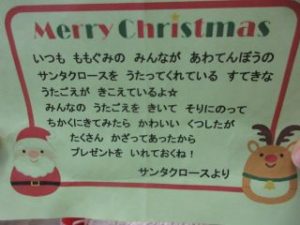 Merry Christmas
いつも ももぐみの みんなが あわてんぼうの
サンタクロースを うたってくれている すてきな
うたごえが きこえているよ☆
みんなの うたごえを きいて そりにのって
ちかくにきてみたら かわいい くつしたが
たくさん かざってあったから
プレゼントを いれておくね!
サンタクロースより